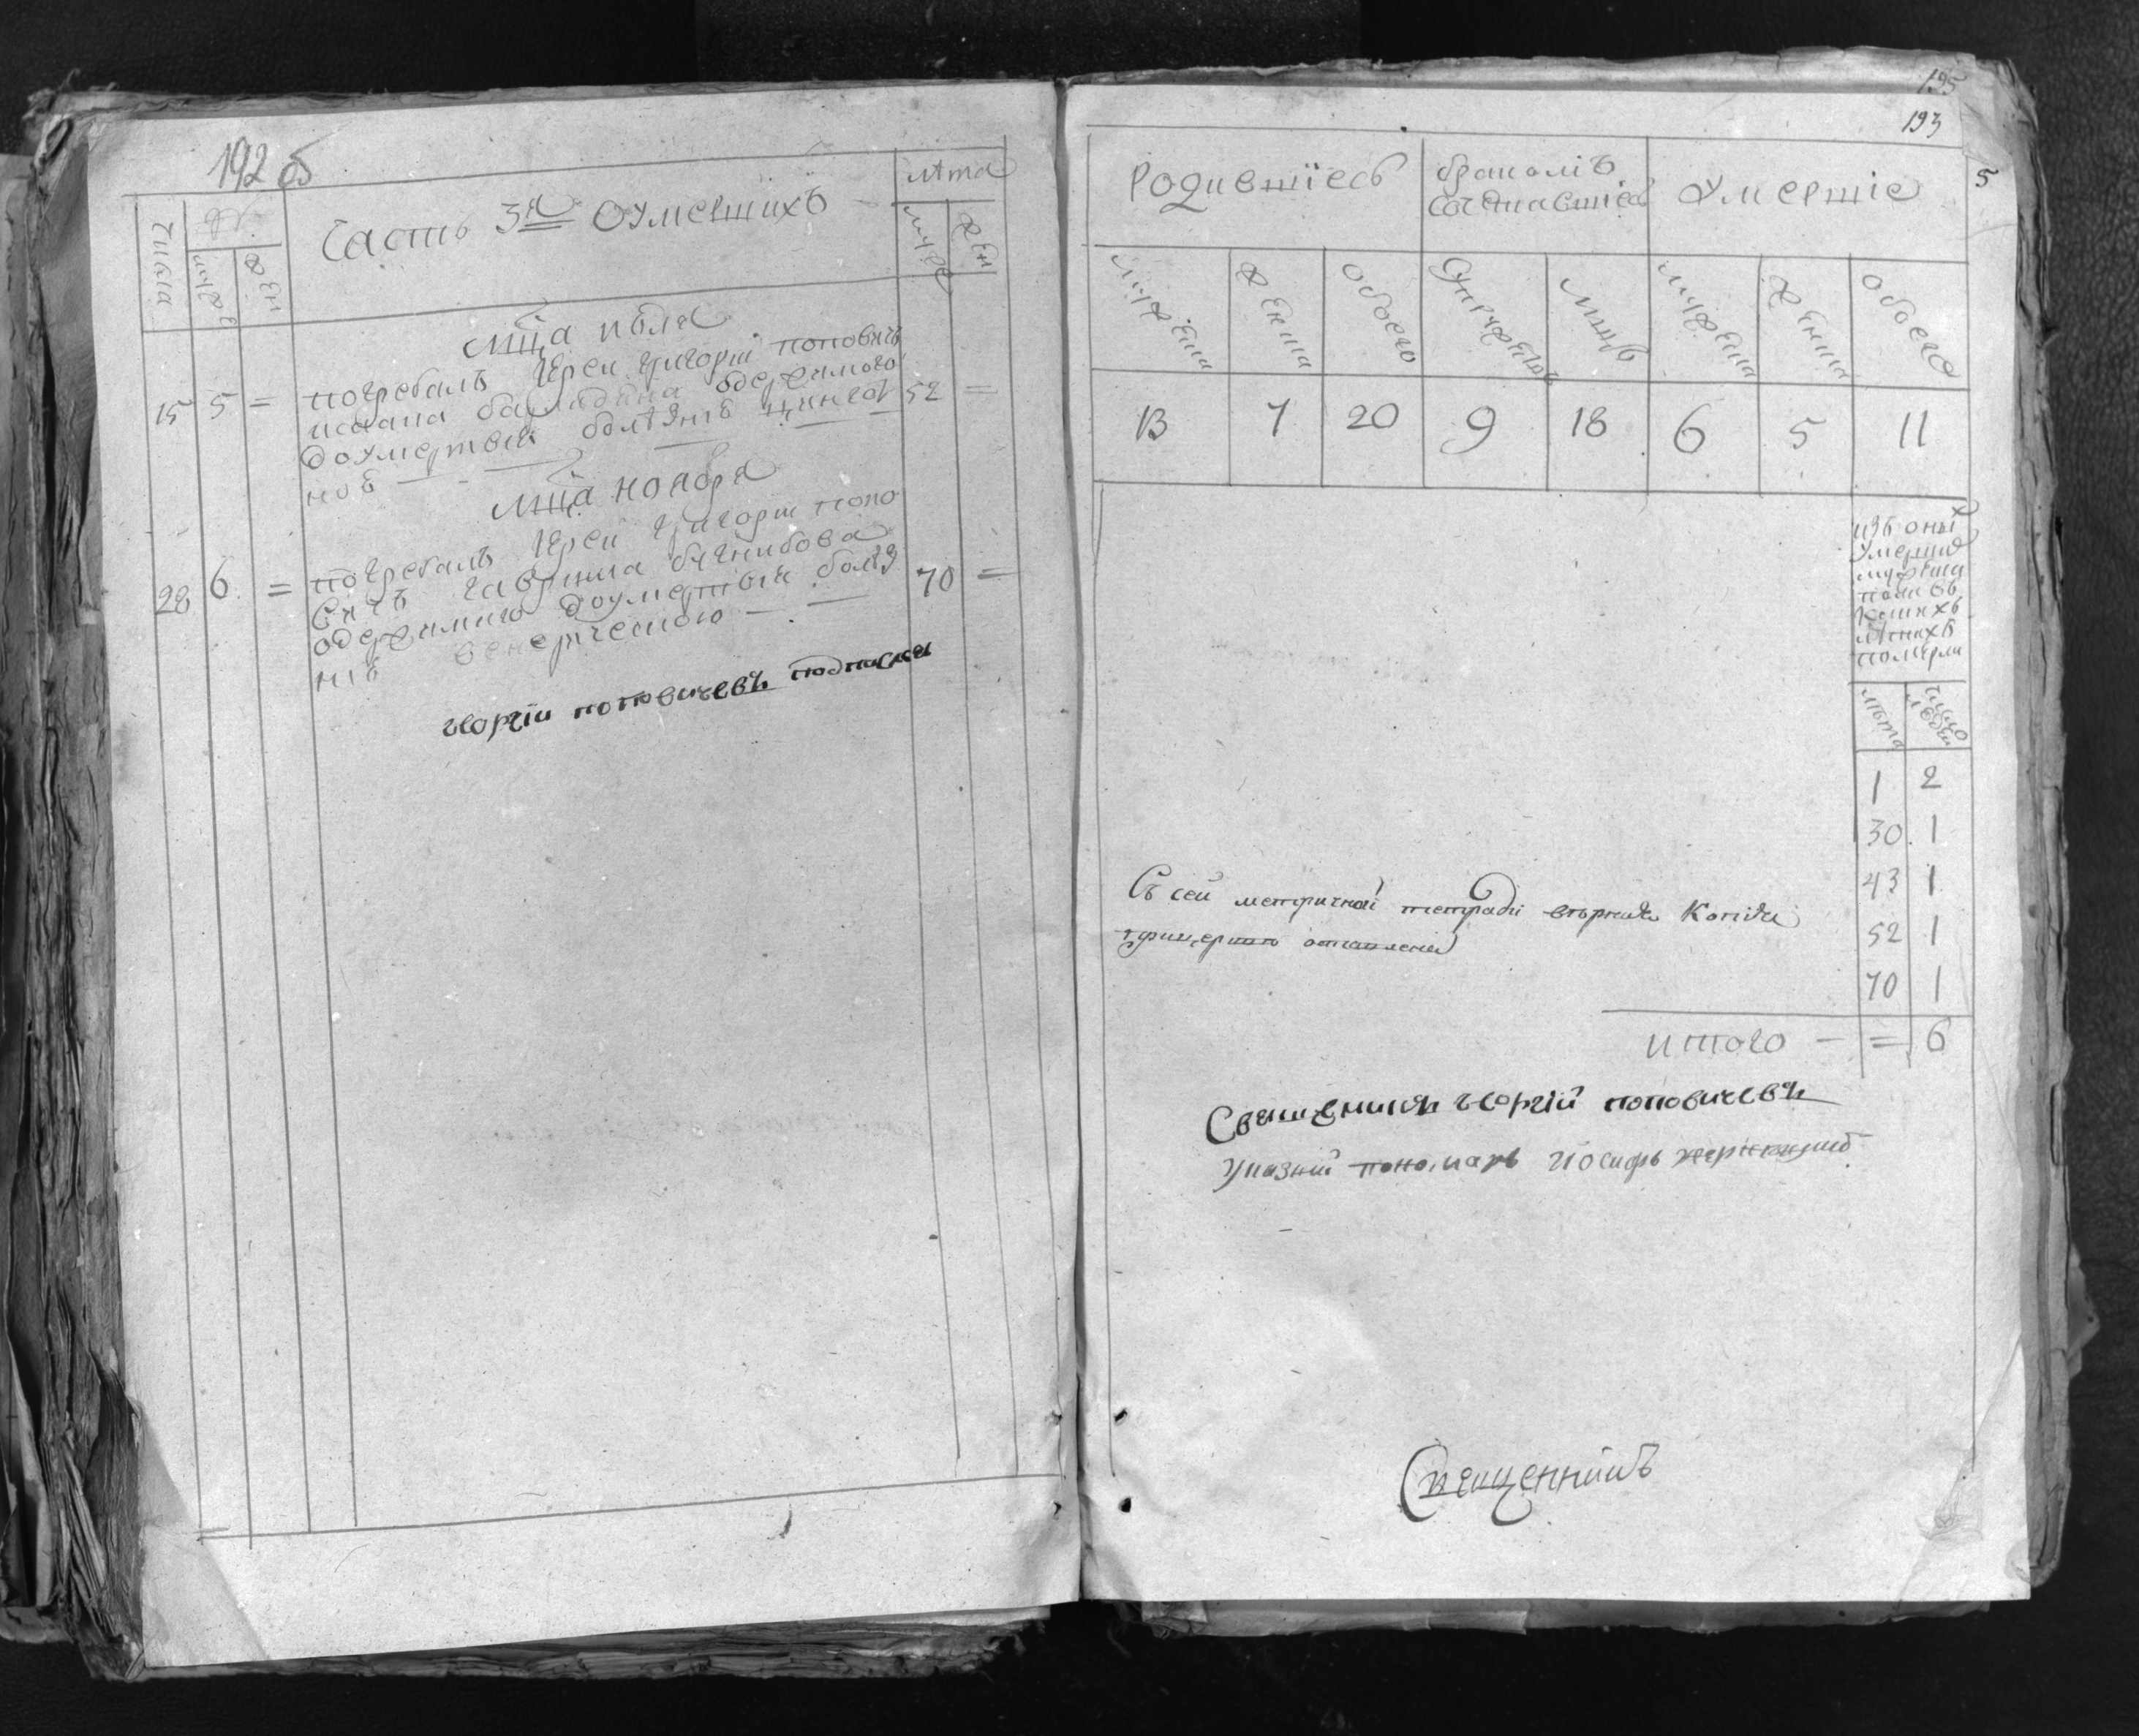 192 об
Числа
№
муж
жен
Часть 3я оумевшихъ
лѣта
муж
жен
мц҃а июля
15 5 = погребалъ Iерей Григорiй поповичъ
одержимого
доумертвия болѣзнь цингот 52 =
ною
мц҃а ноября
28 6 = погребалъ Iерей Григорiй попо
вичъ Гавриила
одержимого доумертвия болѣз 70 =
нiю венерическою
георгiй поповичевъ подписал
195
193
5
Родившiесь
бракомъ сочетавшiесь
Умершiе
мужеска
женска
обоего
Супружествъ
лицъ
мужеска
женска
обоего
13 7 20 9 18 6 5 11
изъ оных
умерших
мужеска
пола въ
какихъ
лѣтахъ
померли
лѣта
число людей
1 2
30 1
43 1
52 1
70 1
итого — = 6
Съ сей метричной тетради вторная копiя
при церкви оставлена
Священникъ георгiй поповичевъ
Указный пономарь Иосифъ
Священникъ